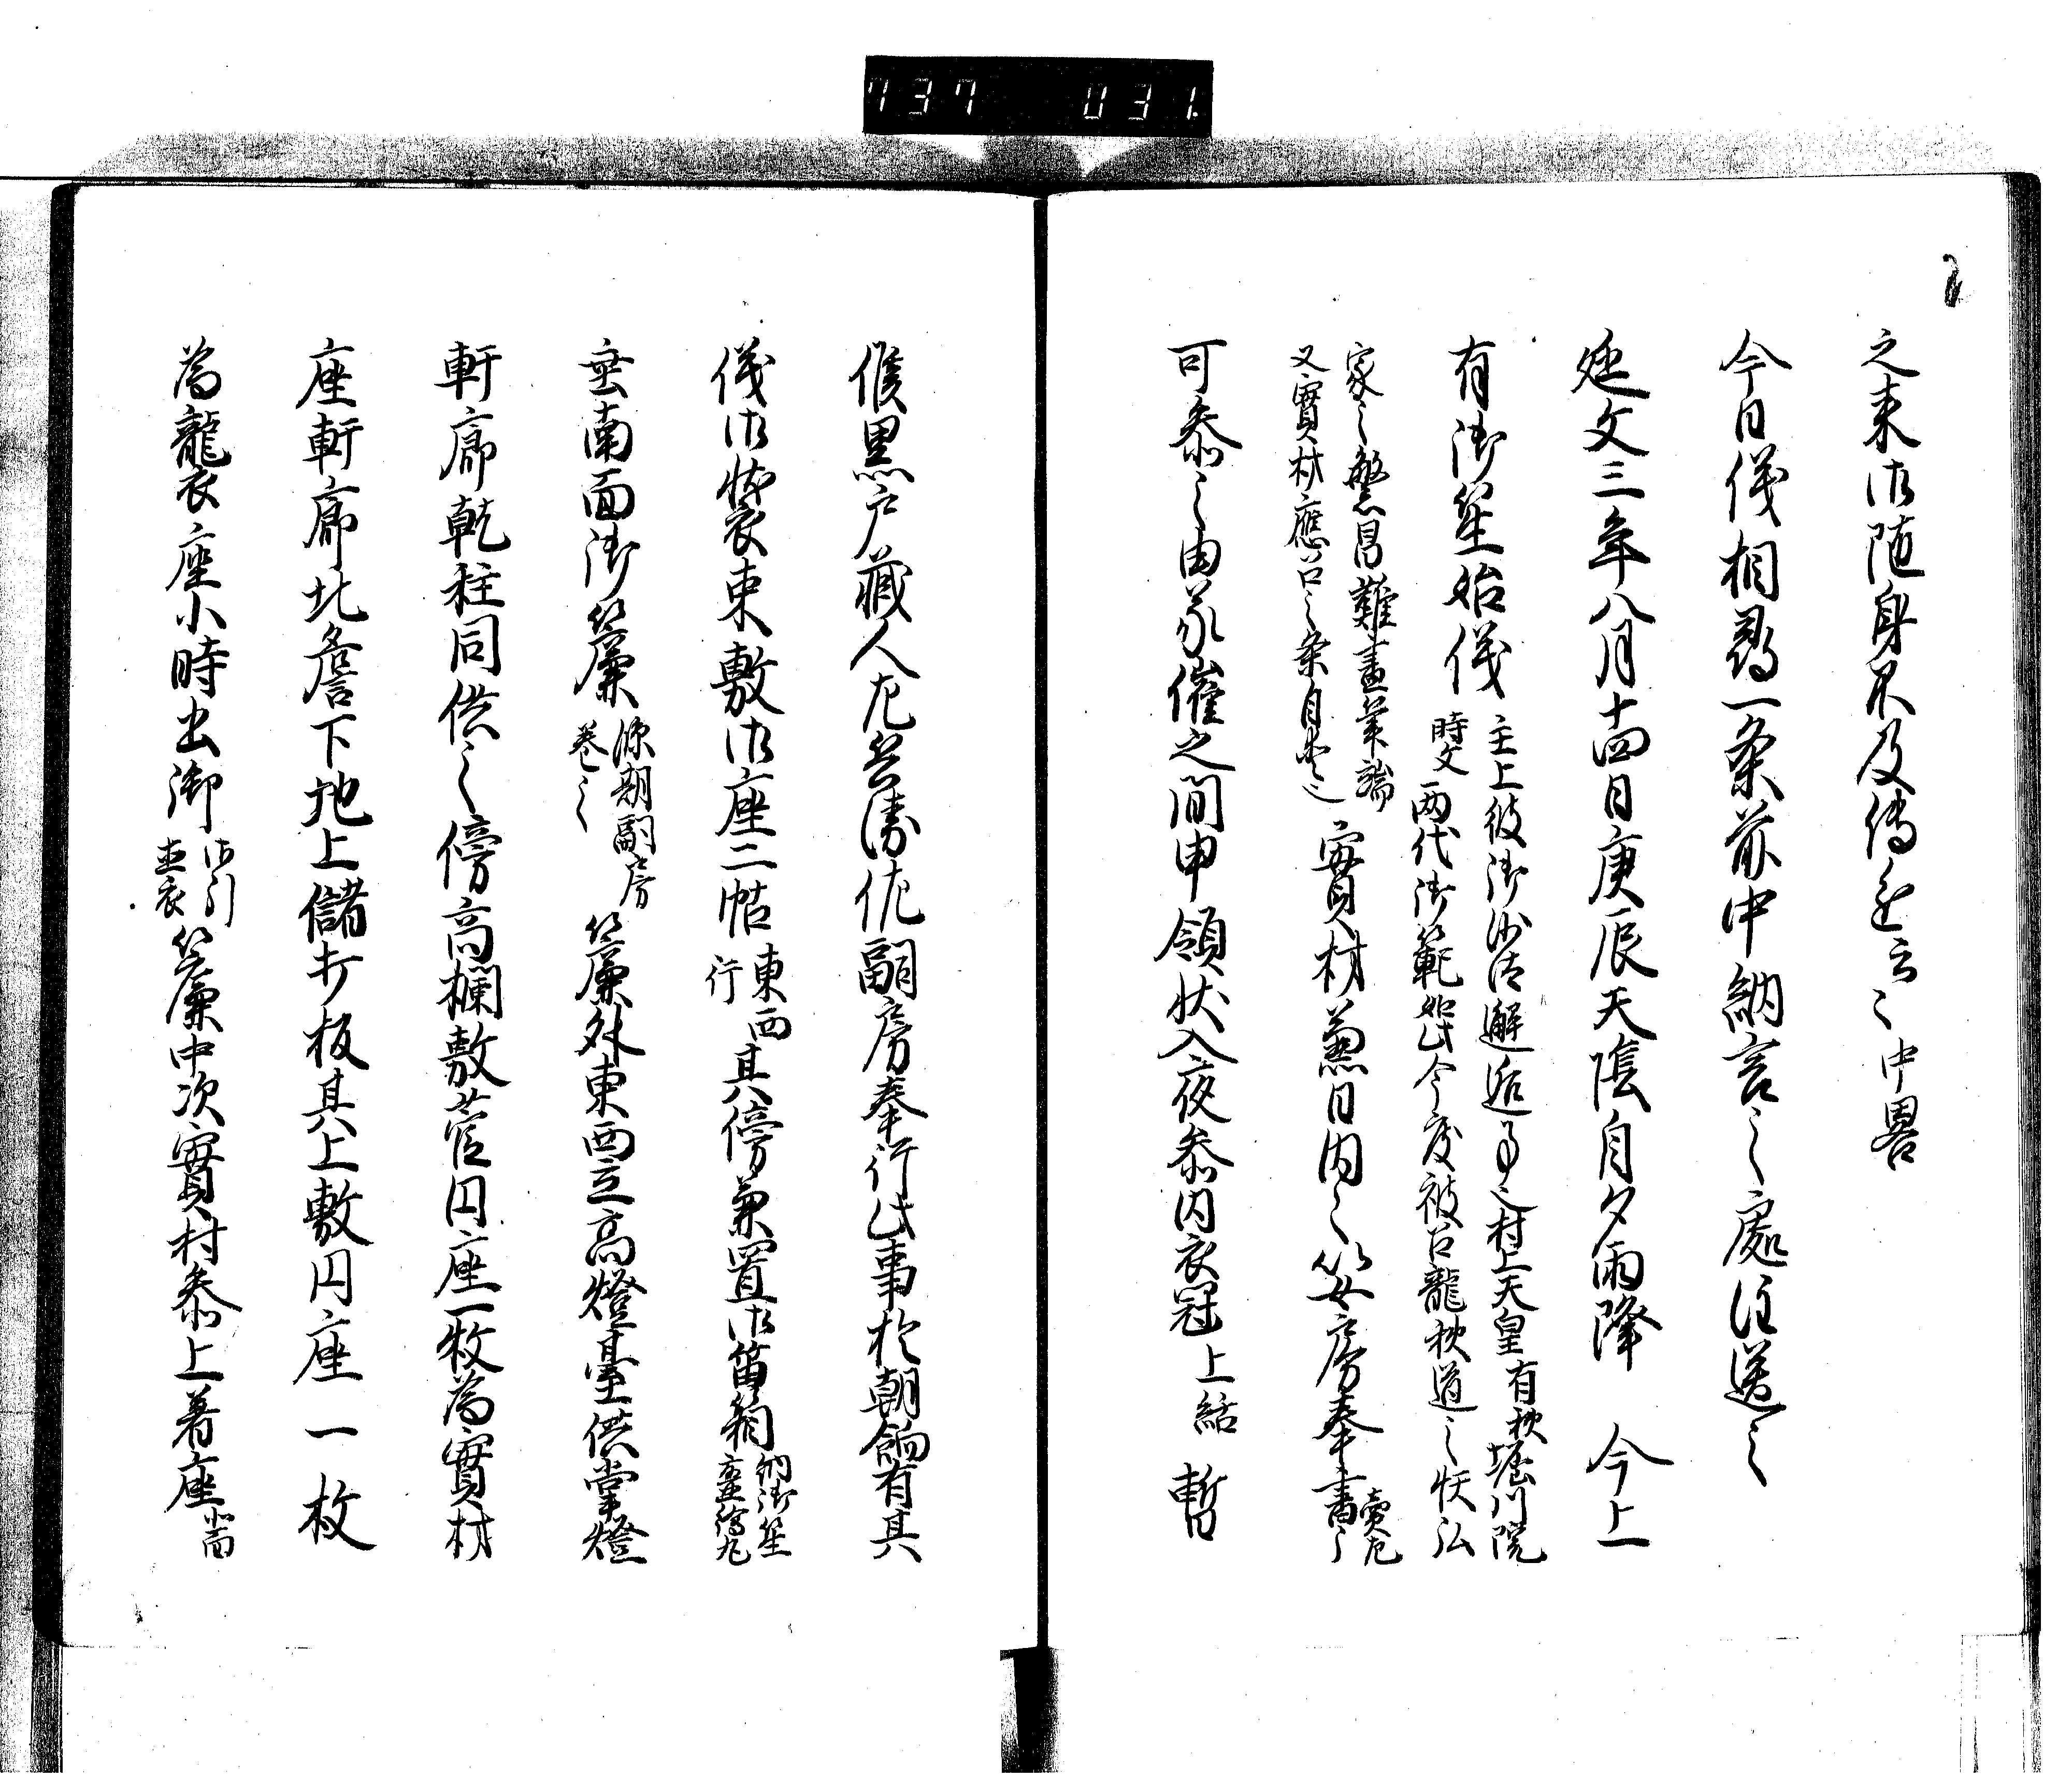 737 031
之末御随身不及傳
云々中畧
今日儀相尋一条前中納言之處注送之
延文三年八月十四日庚辰天陰自夕雨降 今上
有御笙始儀
主上彼御沙汰邂逅事也村上天皇有秋堀川院
時文両代御範如此今度被召龍秋道之
家之繁昌難盡筆端
又實村應召之条自愛也
實村兼日内々以女房奉書
可参之由蒙催之間申領状入夜参内衣冠上結暫
候黒戸蔵人左兵衛佐嗣房奉行此事於朝餉有其
儀御装束敷御座二帖
東西
行
其傍兼置御笛筥
納御笙
垂南面御簾
嗣房
巻之
簾外東西立高燈臺供掌燈
軒廊乾柱同供之傍高欄敷菅円座一枚為實村
座軒廊北簷下地上儲打板其上敷円座一枚
為龍秋座小時出御
御引
直衣
簾中次實村参上着座